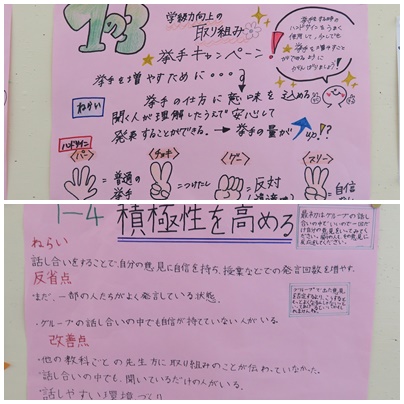 1の3
学習力向上の
取り組み
★挙手キャンペーン!
挙手する時の
ハンドサインをうまく
使用して、少しでも
★挙手を増やすこと
ができるように
がんばりましょう!
挙手を増やすために・・・
ねらい
挙手の仕方に意味を込める
聞く人が理解したうえで安心して
発表することができる。→挙手の量がup!?
ハンドサイン
<パー>
<チョキ>
<グー>
<スリー>
=普通の
挙手
=つけたし
=反対
=自信
1-4 積極性を高める
ねらい
話し合いをすることで、自分の意見に自信を持ち、授業などでの発言回数を増やす。
反省点
・まだ、一部の人たちがよく発言している状態。
・グループの話し合いの中でも自信が持てていない人がいる。
改善点
・他の教科ごとの先生方に取り組みのことが伝わっていなかった。
・話し合いの中でも、聞いているだけの人がいる。
話しやすい環境づくり